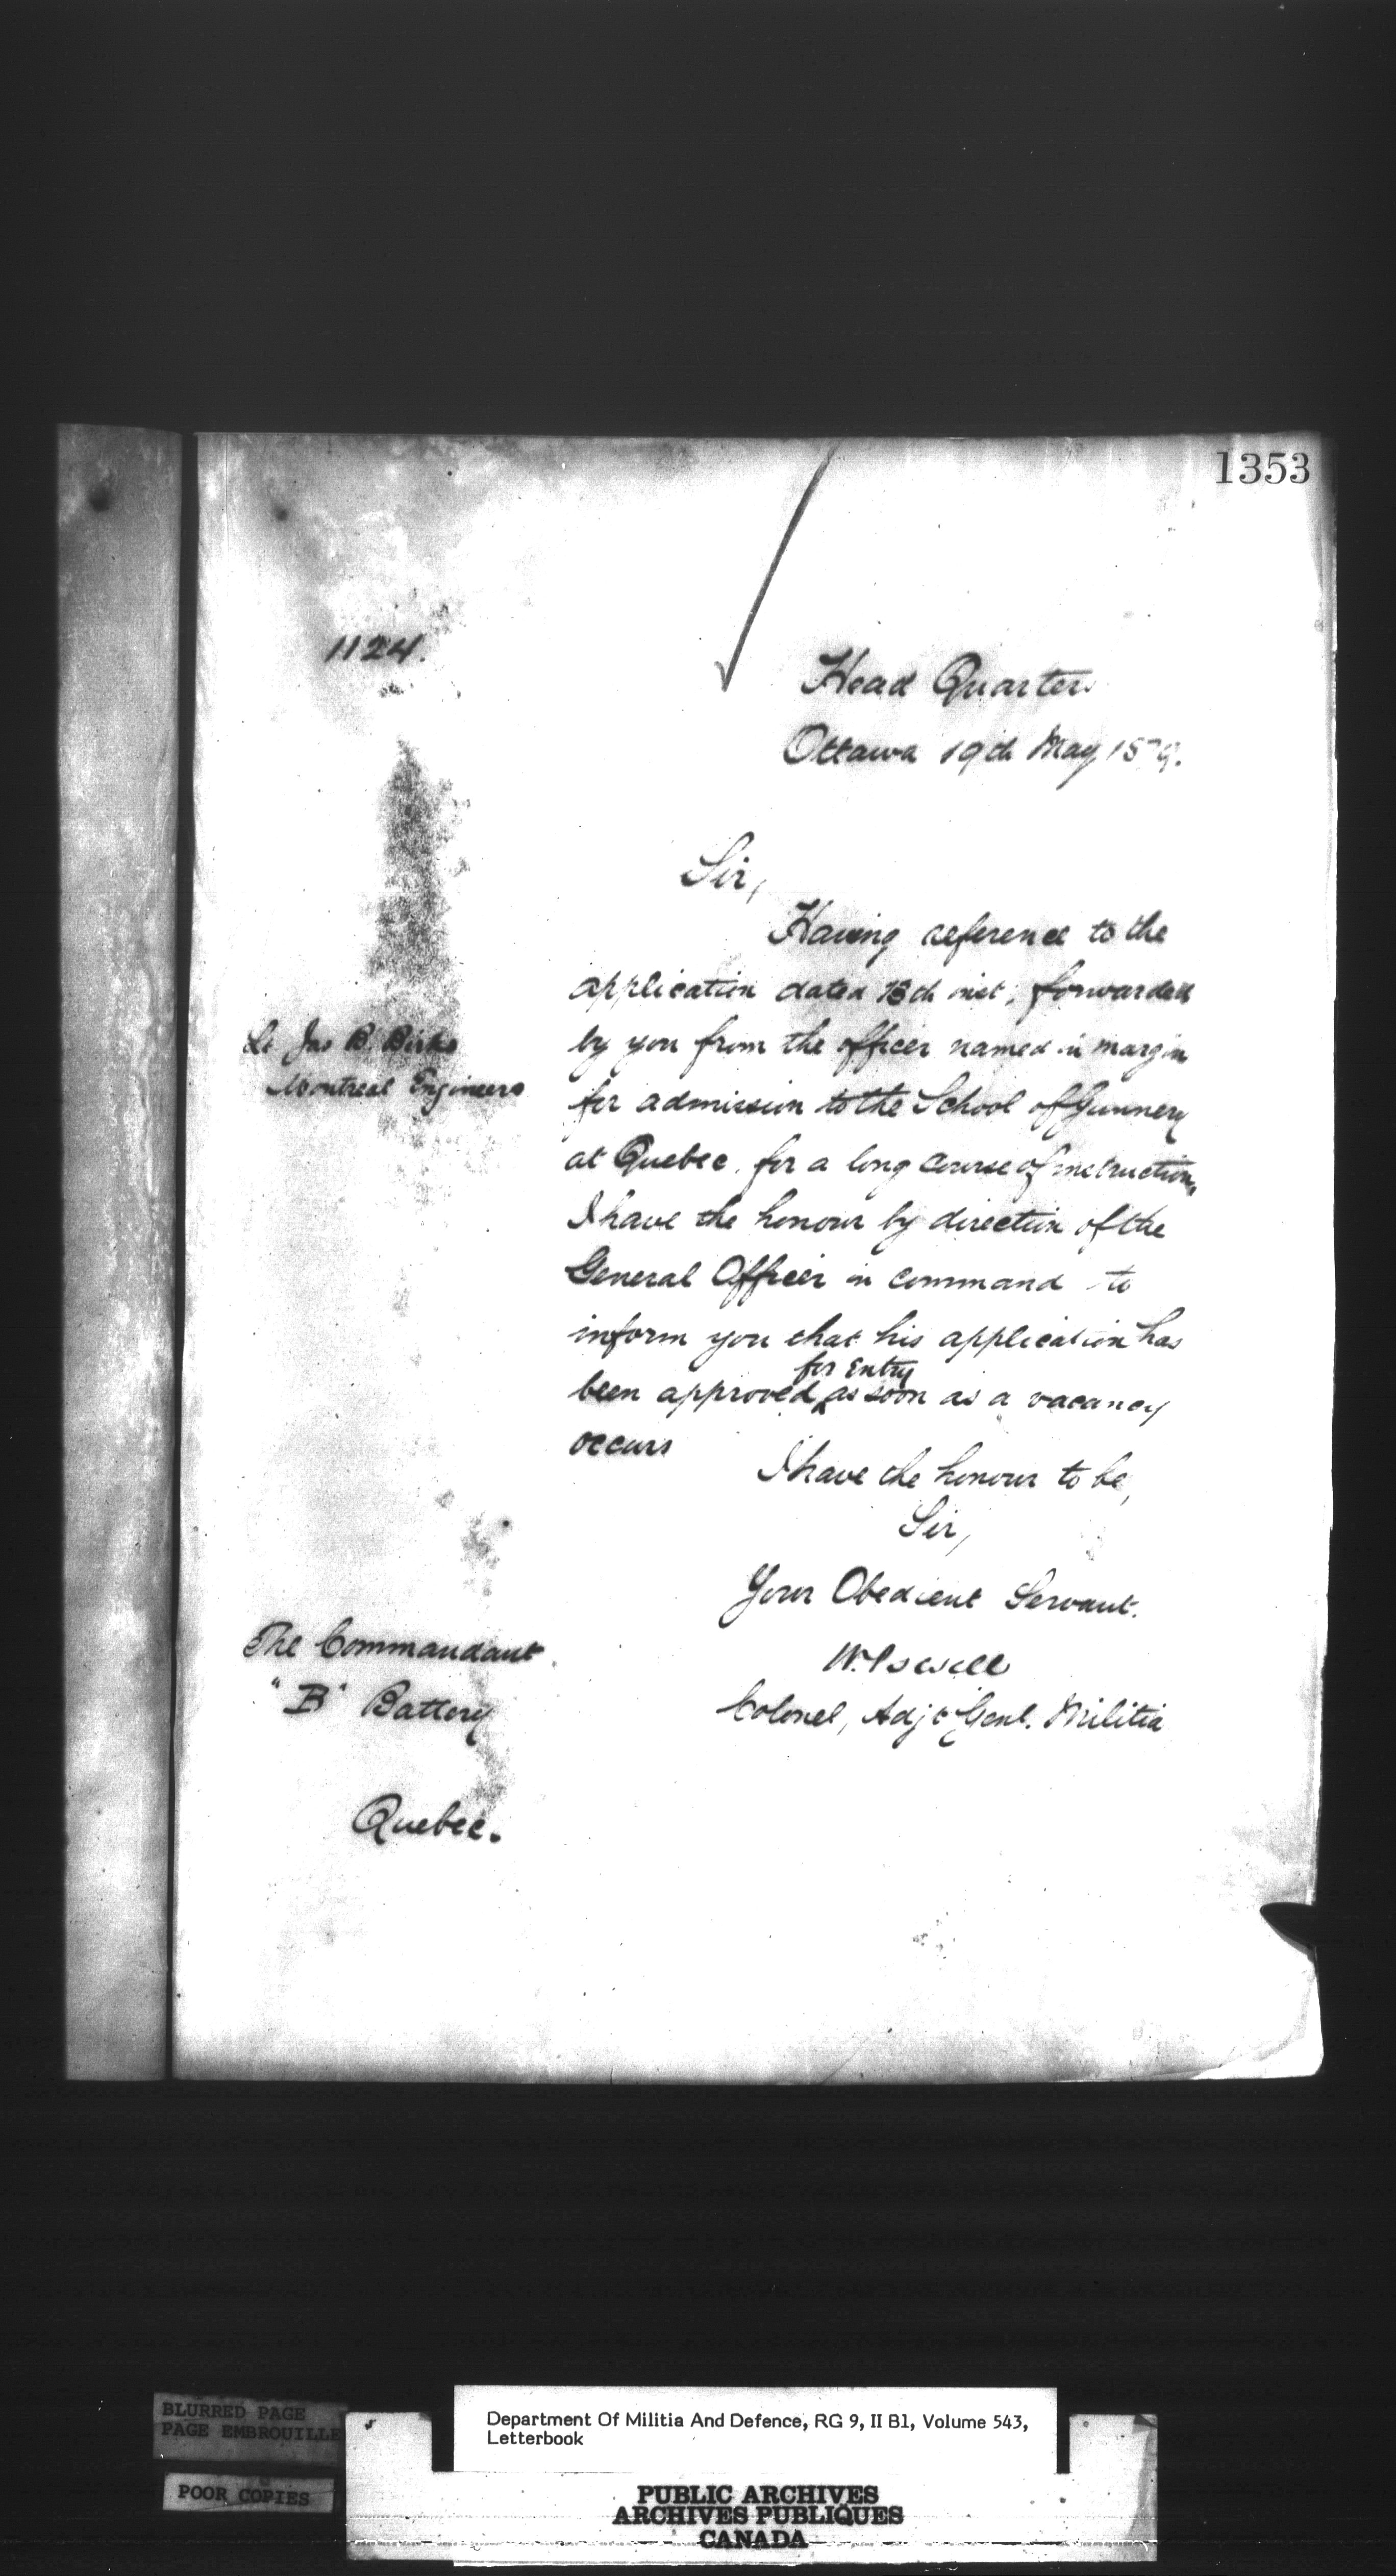 1353
1124.
Head Quarters
Ottawa 19th May 1879.
Sir,
Having reference to the
application dated 13th inst, forwarded
by you from the officer named in margin
for admission to the School of Gunnery
at Quebec, for a long course of instruction,
I have the honour by direction of the
General Officer in command to
inform you that his application has
been approved for Entry as soon as a vacancy
occurs
Lt Jas B. Birks
Montreal Engineers
I have the honour to be,
Sir,
Your Obedient Servant.
W. Powell
Colonel, Adjt Genl. Militia
The Commandant
"B" Battery
Quebec.
BLURRED PAGE
PAGE EMBROUILLE
POOR COPIES
Department Of Militia And Defence, RG 9, II B1, Volume 543,
Letterbook
PUBLIC ARCHIVES
ARCHIVES PUBLIQUES
CANADA